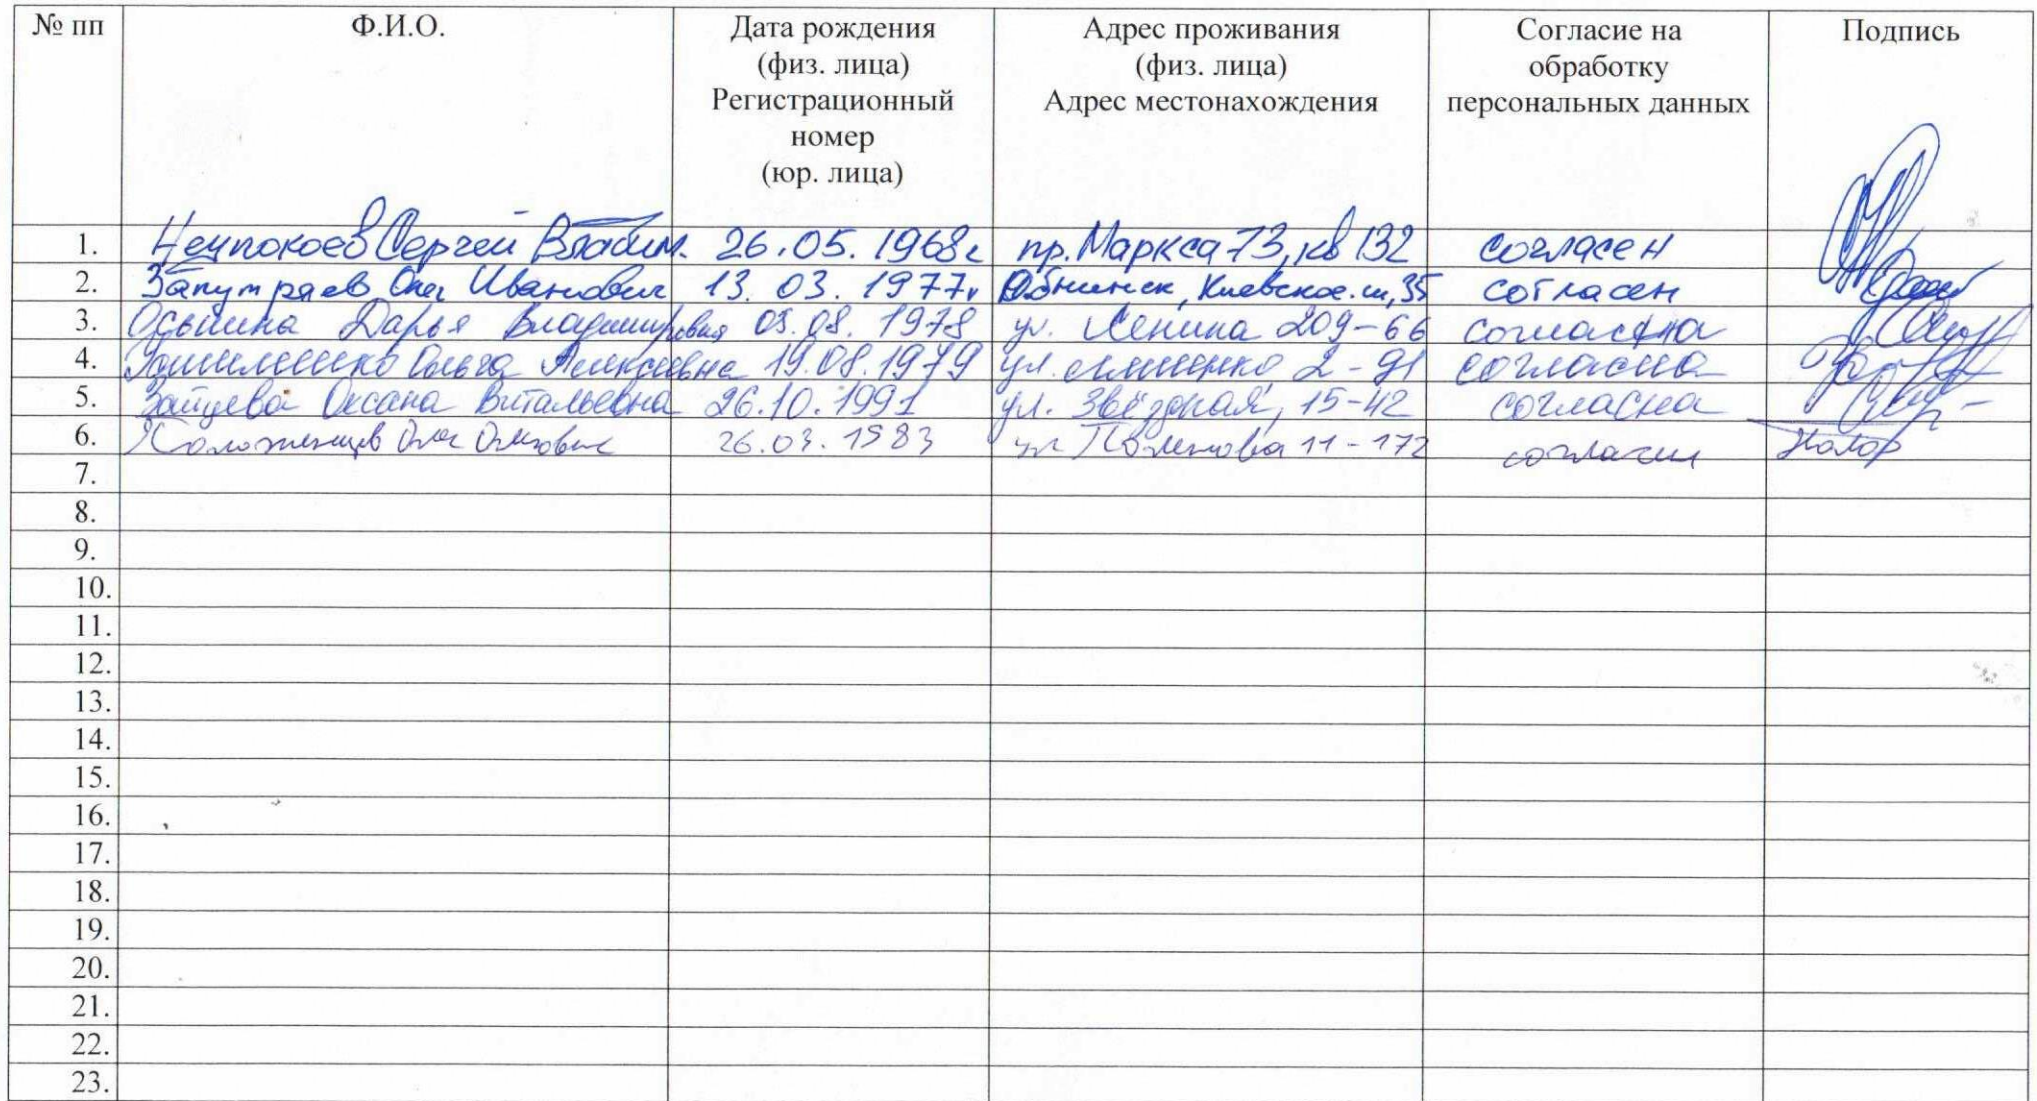 № пп Ф.И.О. Дата рождения (физ. лица) Регистрационный номер (юр. лица) Адрес проживания (физ. лица) Адрес местонахождения Согласие на обработку персональных данных Подпись
1. Неупокоев Сергей Владим. 26.05.1968г пр. Маркса 73, кв 132 согласен
2. Запутряев Олег Иванович 13.03.1977г Обнинск, Киевское.ш, 35 согласен
3. Осьшина Дарья Владимировна 05.08.1978 ул. Ленина 209-66 согласна
4. Ольга Алексеевна 19.08.1979 ул. 2-91 согласна
5. Зайцева Оксана Витальевна 26.10.1991 ул. Звёздная, 15-42 согласна
6. Олег Олегович 26.03.1983 ул 11-172 согласен
7.
8.
9.
10.
11.
12.
13.
14.
15.
16.
17.
18.
19.
20.
21.
22.
23.